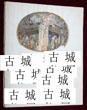 古城 古城
古城
古城 古城
古城